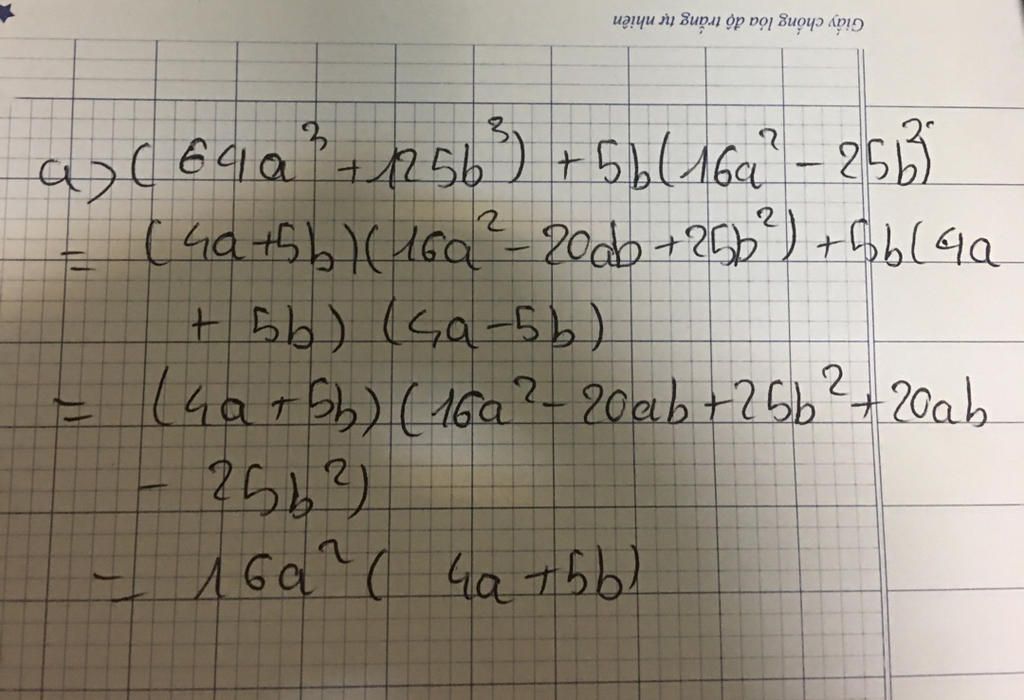 Giấy chống lóa độ trắng tự nhiên
a> (64a³ + 125b³) + 5b(16a² - 25b²)
= (4a+5b)(16a² - 20ab + 25b²) + 5b(4a
+ 5b) (4a - 5b)
= (4a + 5b)(16a² - 20ab + 25b² + 20ab
- 25b²)
= 16a² ( 4a + 5b)